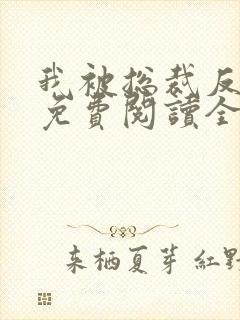 我被总裁反
免費閱讀全
来栖夏芽 紅野